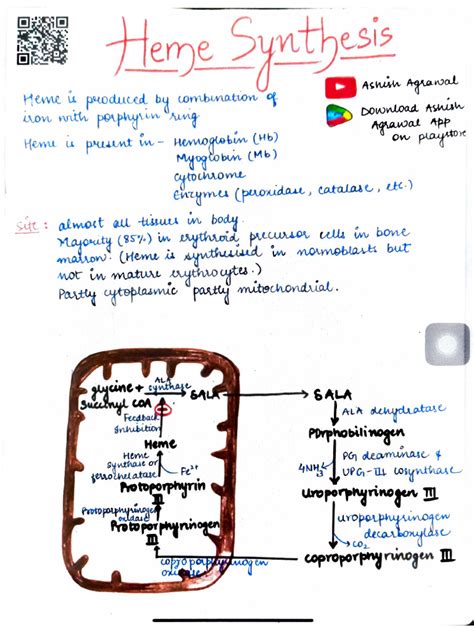 Heme Synthesis
Ashish Agrawal
Download Ashish
Agrawal App
on playstore
Heme is produced by combination of
iron with porphyrin ring
Heme is present in - Hemoglobin (Hb)
Myoglobin (Mb)
Cytochrome
Enzymes (peroxidase, catalase, etc.)
Site : almost all tissues in body.
Majority (85%) in erythroid precursor cells in bone
marrow. (Heme is synthesised in normoblasts but
not in mature erythrocytes.)
Partly cytoplasmic partly mitochondrial.
glycine +
Succinyl COA
ALA
synthase
δALA
δALA
Feedback
Inhibition
ALA dehydratase
PDrphobilinogen
Heme
Heme
Synthase or
ferrochelatase
Fe2+
4NH3
PG deaminase &
UPG-III cosynthase
Protoporphyrin
III
Uroporphyrinogen III
Protoporphyrinogen
oxidase
Protoporphyrinogen
III
uroporphyrinogen
decarboxylase
CO2
coproporphyrinogen
oxidase
coproporphyrinogen III